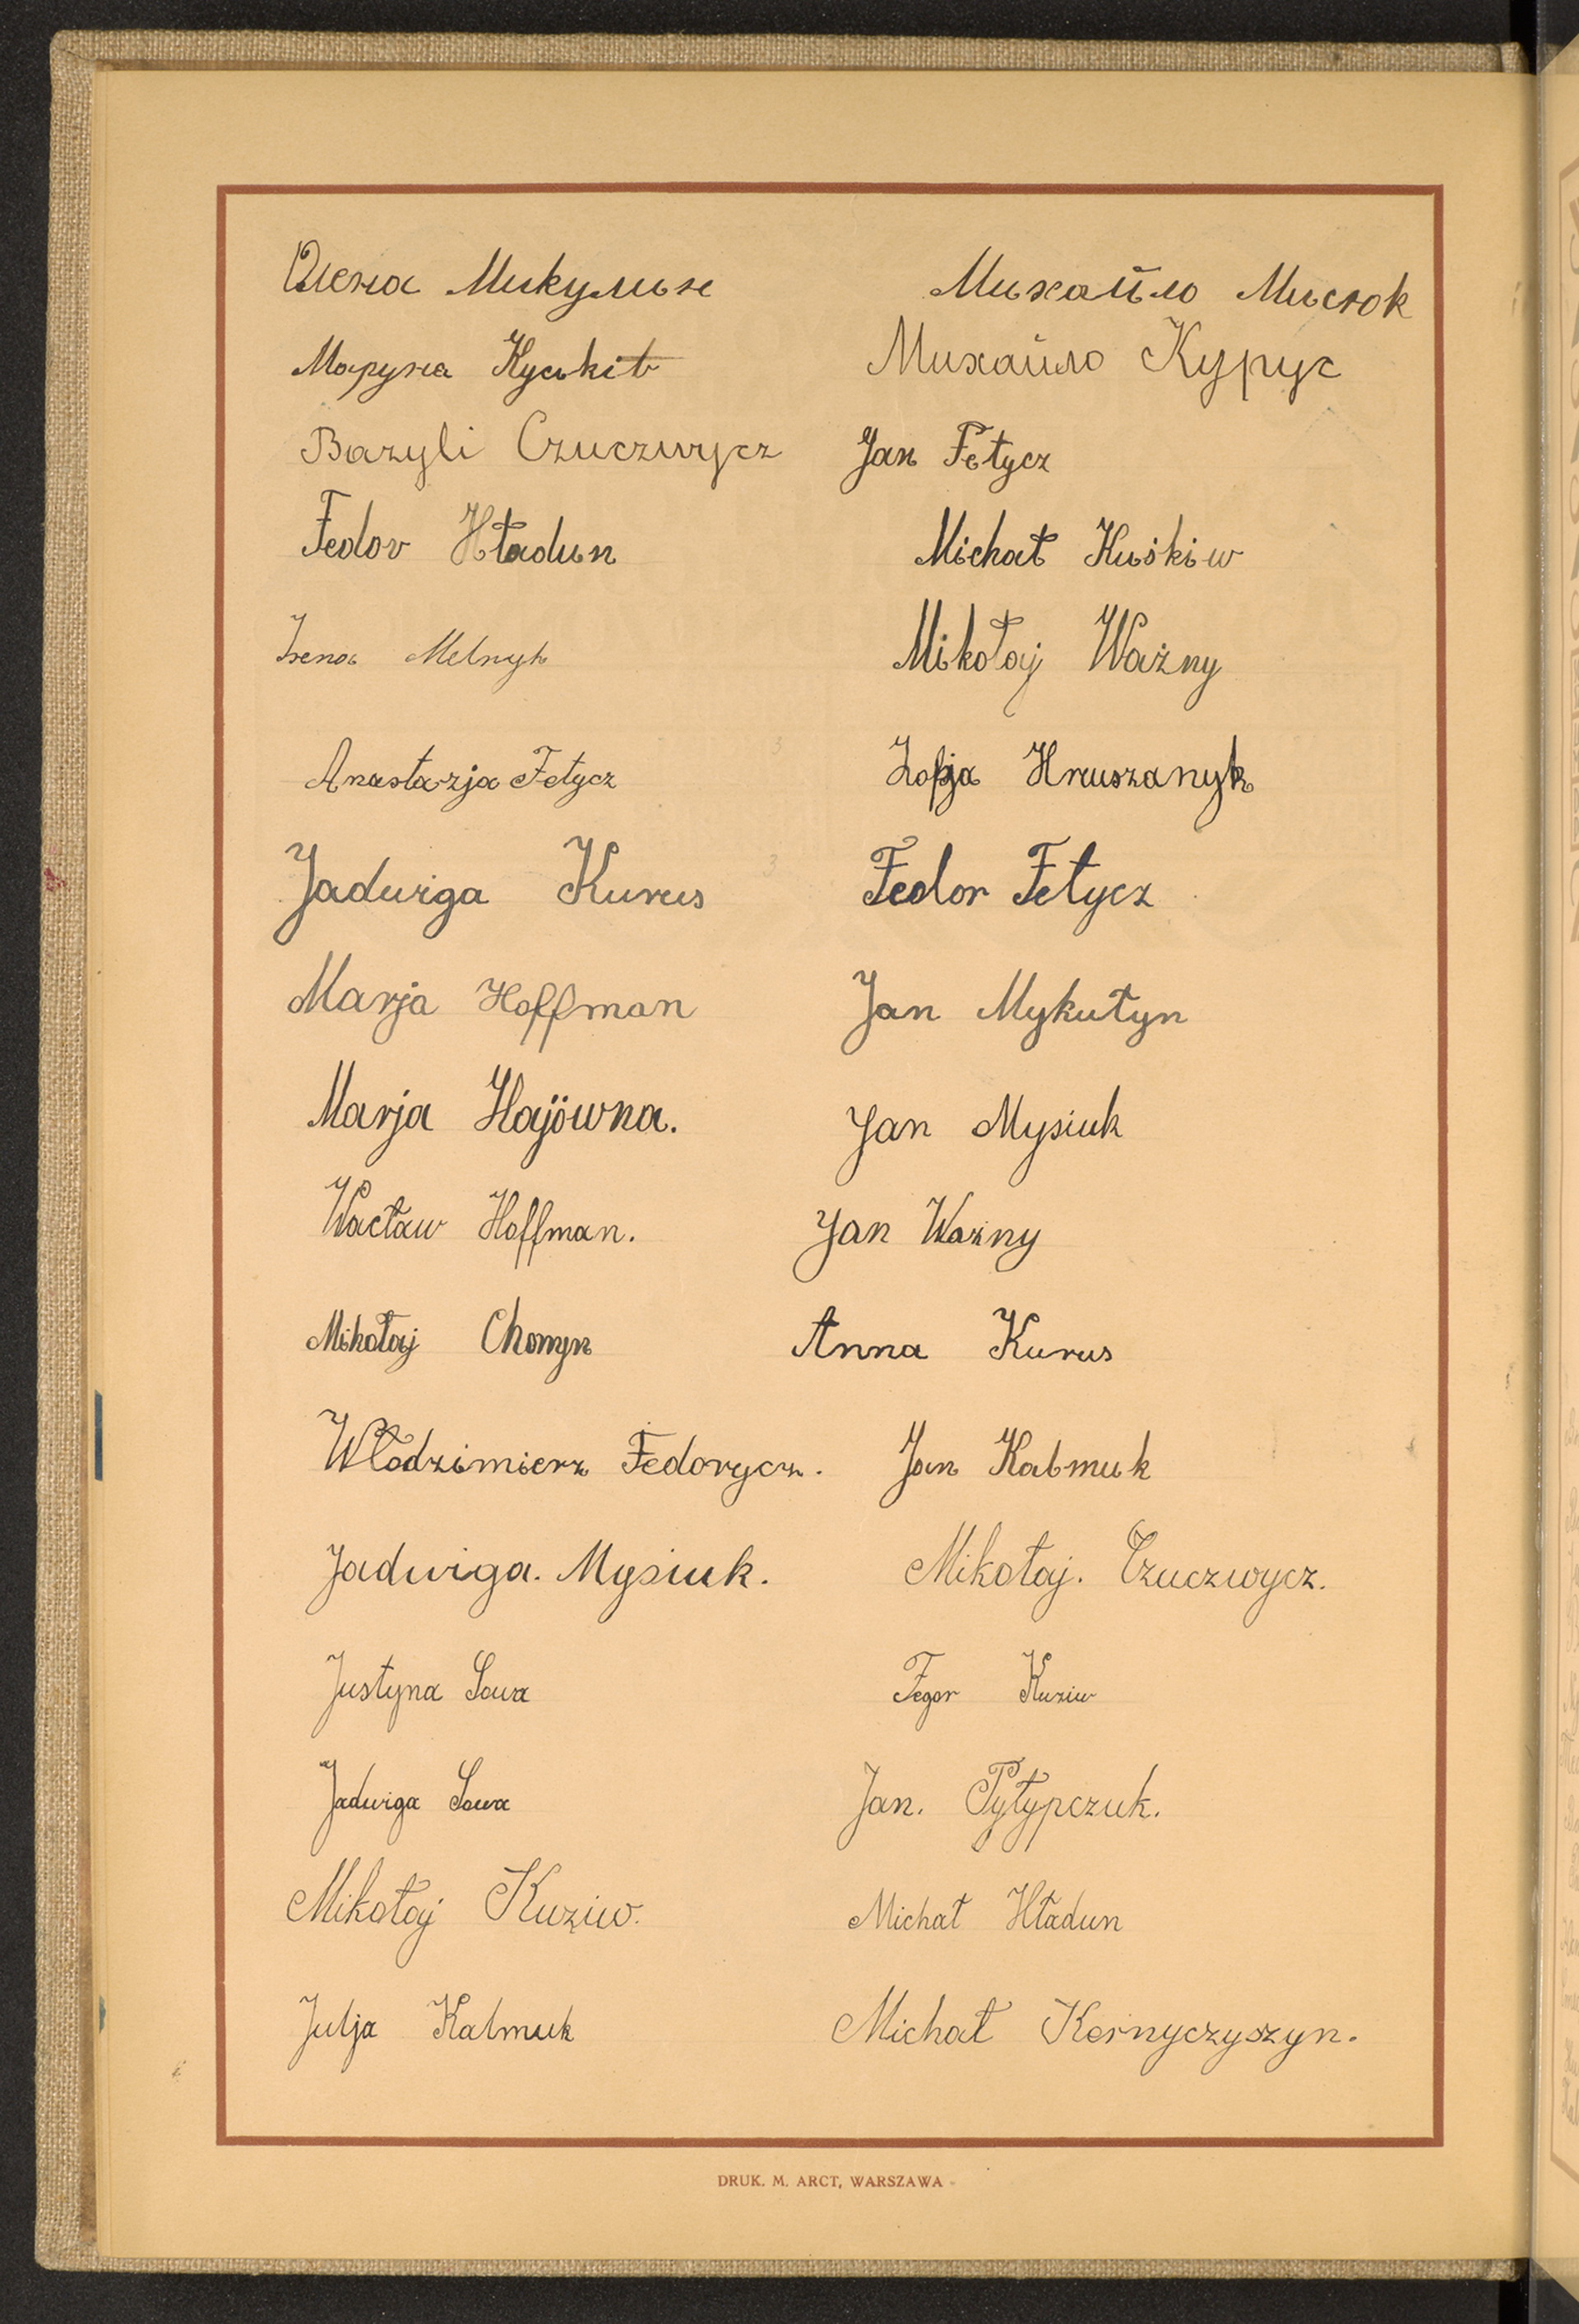 Олена Микулин
Михайло Мисюк
Маруня Куськів
Михайло Курус
Bazyli Czuczwycz
Jan Fetycz
Fedor Hładun
Michał Kuśkiw
Irena Melnyk
Mikołaj Ważny
Anastazja Fetycz
Zofja Hruszanyk
Jadwiga Kurus
Fedor Fetycz
Marja Hoffman
Jan Mykułyn
Marja Hajówna.
Jan Mysiuk
Wacław Hoffman.
Jan Ważny
Mikołaj Chomyn
Anna Kurus
Włodzimierz Fedorycz.
Jan Kalmuk
Jadwiga. Mysiuk.
Mikołaj. Czuczwycz.
Justyna Sowa
Fegor Kuziw
Jadwiga Sowa
Jan. Pyłypczuk.
Mikołaj Kuziw.
Michał Hładun
Julja Kalmuk
Michał Kernyczyszyn.
DRUK. M. ARCT, WARSZAWA